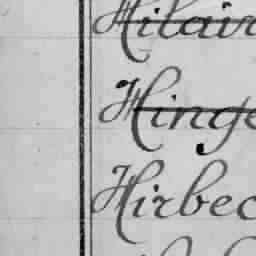 Hilair
Hinge
Hirbec